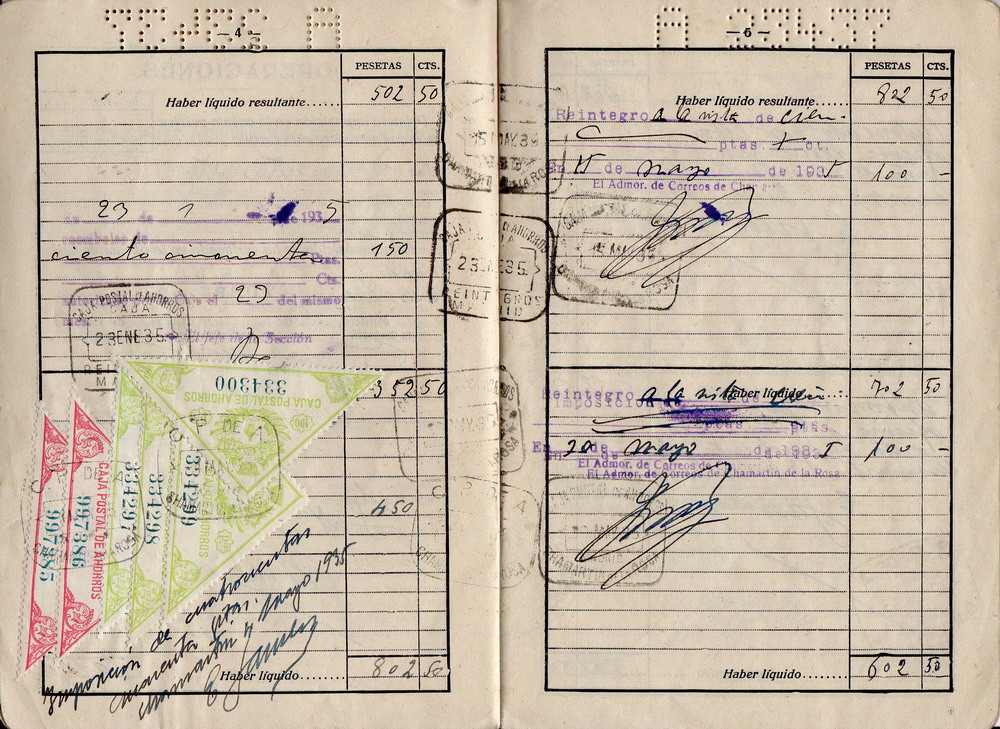 — 4 —
PESETAS CTS.
Haber líquido resultante...... 502 50
23 de 1 de 1935
reembolso de
ciento cincuenta Ptas. 150
Cts.
23 del mismo
mes
El Jefe de la Sección
CAJA POSTAL DE AHORROS
CAJA
23 ENE 35
352 50
334300
CAJA POSTAL DE AHORROS
334299
CAJA POSTAL DE AHORROS
334298
334297
CAJA POSTAL DE AHORROS
997386
997385
450
Imposición de cuatrocientas
cincuenta ptas.
Chamartín 7 Mayo 1935
Haber líquido...... 802 50
CAJA POSTAL DE AHORROS
23 ENE 35
REINTEGROS
MADRID
A 23437
— 5 —
PESETAS CTS.
Haber líquido resultante...... 822 50
Reintegro a la vista de cien
ptas. + ct.
En 15 de mayo de 1935 100 —
El Admor. de Correos de
Reintegro a la vista cien
Haber líquido...... 702 50
Imposición de
ptas
En 20 de mayo de 1935 100 —
El Admor. de Correos de
El Admor. de Correos de Chamartin de la Rosa
CHAMARTIN DE LA ROSA
Haber líquido...... 602 50